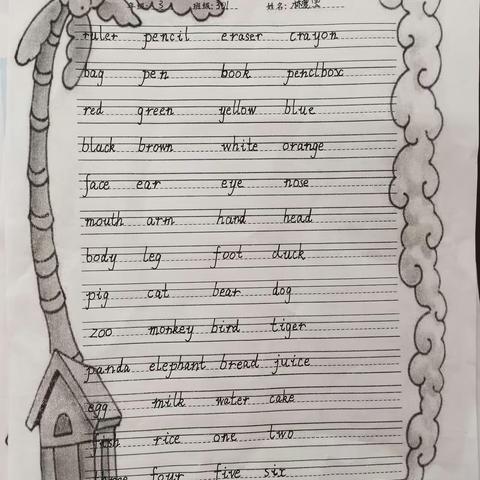 年级: 3 班级: 姓名:
ruler pencil eraser crayon
bag pen book penclbox
red green yellow blue
black brown white orange
face ear eye nose
mouth arm hand head
body leg foot duck
pig cat bear dog
zoo monkey bird tiger
panda elephant bread juice
egg milk water cake
fish rice one two
three four five six